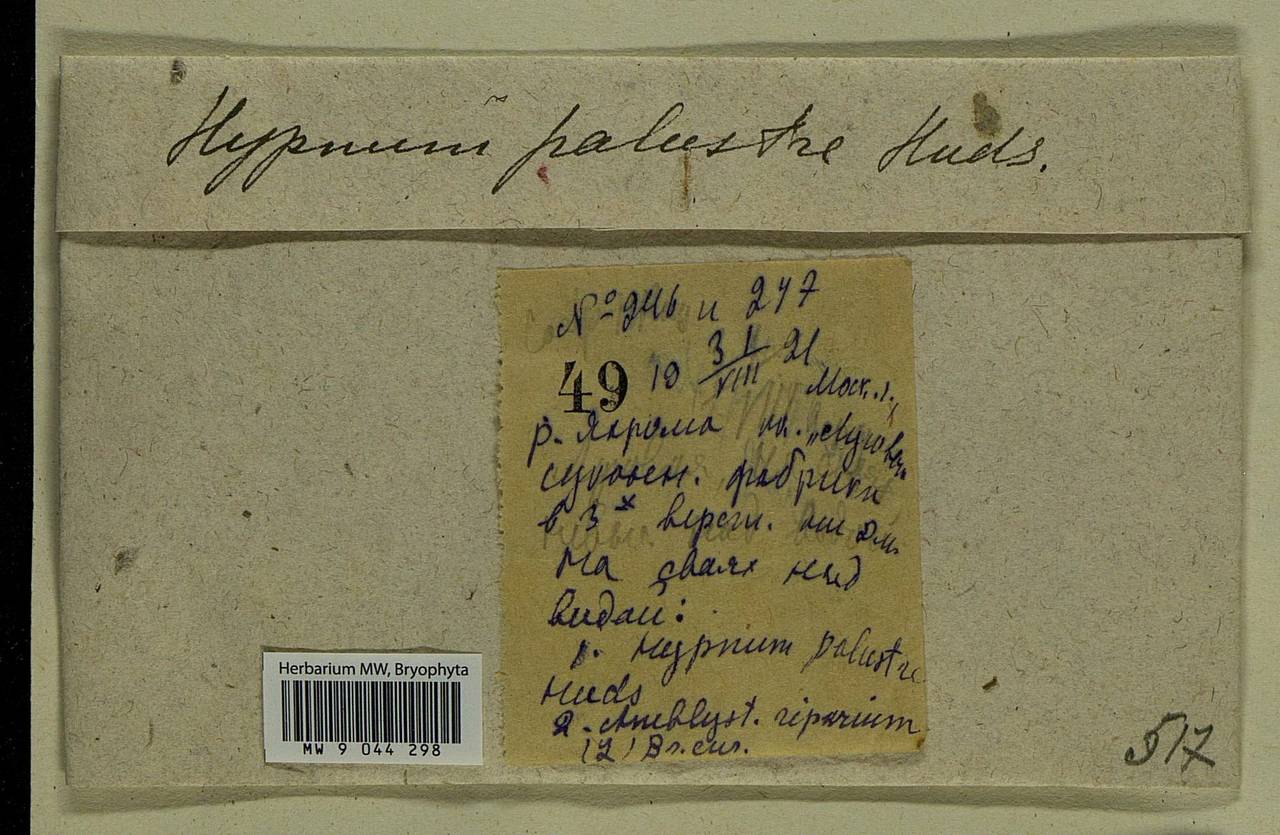 Hypnum palustre Huds.
№ 246 и 247
49 19 3 I/VIII 21
Моск.
р. Яхрома
сукон. фабрики
в 3х верст. от Дм.
На сваях над
водой:
1. Hypnum palustre
Huds
2. Amblyst. riparium
(L) Br. eur.
Herbarium MW, Bryophyta
MW 9 044 298
517